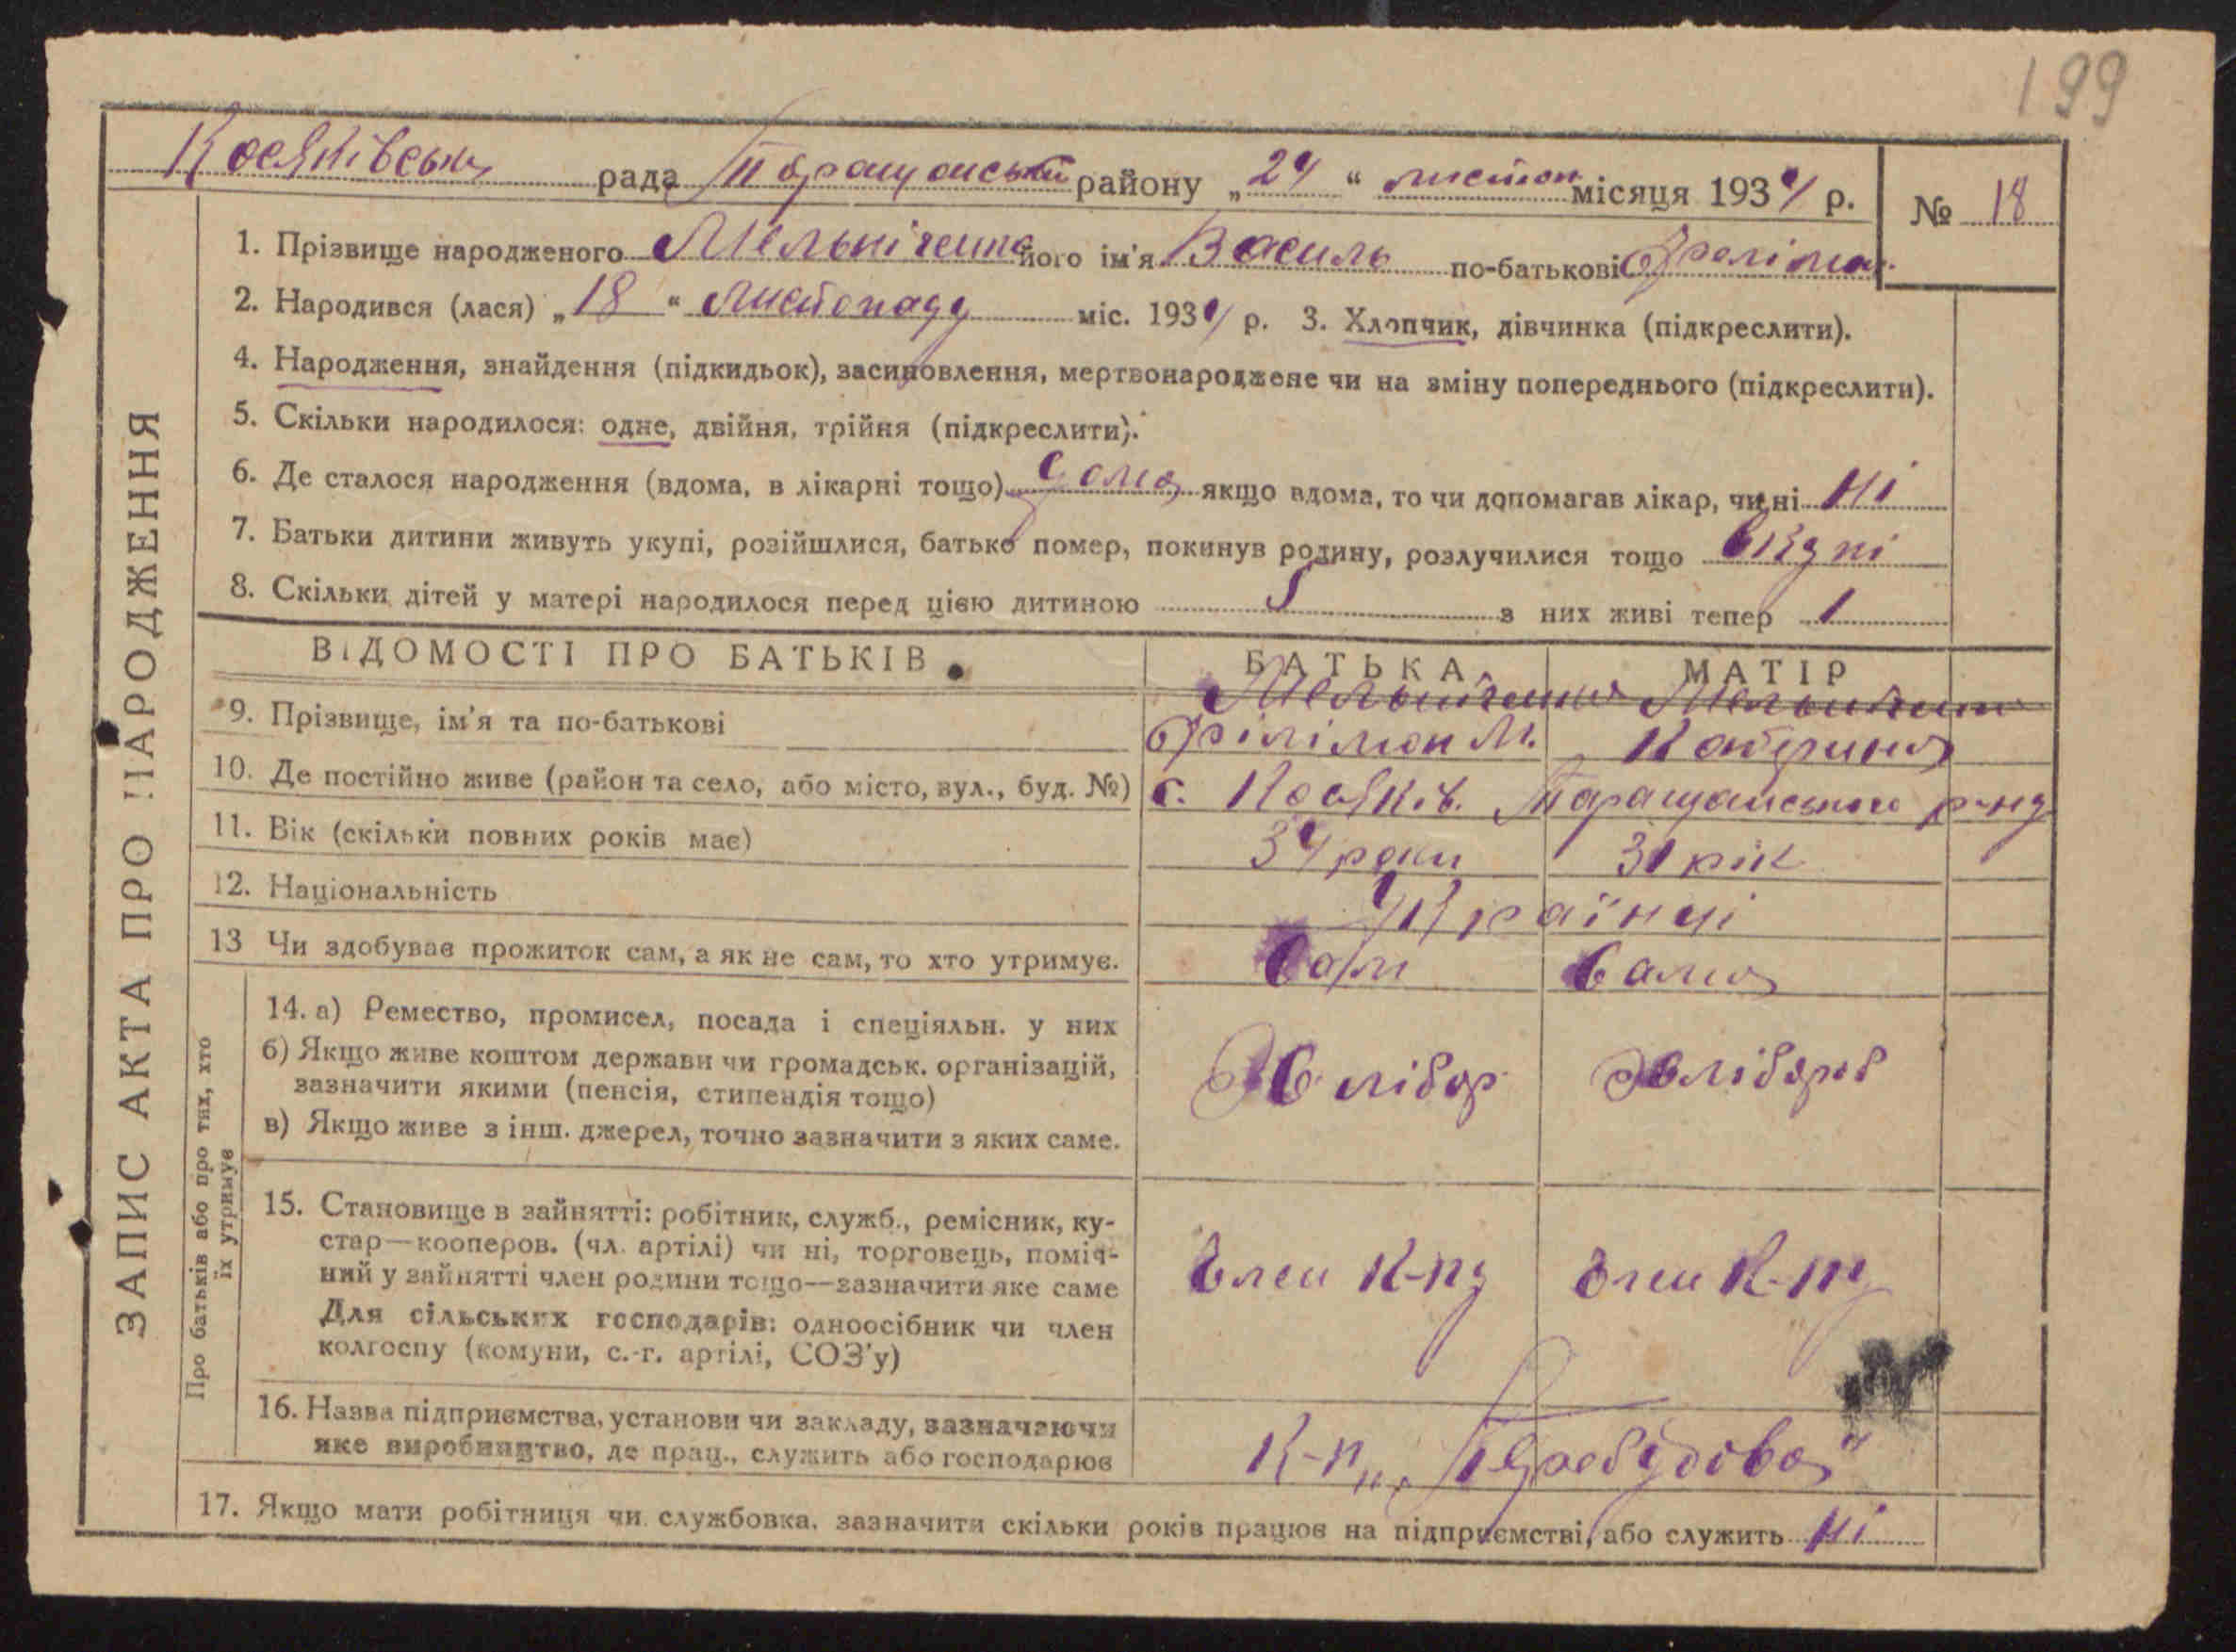 199
Косяківська рада Таращанський району „24“ листоп місяця 1934 р. № 18
1. Прізвище народженого Мельніченко його ім'я Василь по-батькові Філімон.
2. Народився (лася) „18“ листопаду міс. 1934 р. 3. Хлопчик, дівчинка (підкреслити).
4. Народження, знайдення (підкидьок), засиновлення, мертвонароджене чи на зміну попереднього (підкреслити).
5. Скільки народилося: одне, двійня, трійня (підкреслити).
6. Де сталося народження (вдома, в лікарні тощо) дома якщо вдома, то чи допомагав лікар, чи ні ні
7. Батьки дитини живуть укупі, розійшлися, батько помер, покинув родину, розлучилися тощо
8. Скільки дітей у матері народилося перед цією дитиною 5 з них живі тепер 1
ВІДОМОСТІ ПРО БАТЬКІВ. БАТЬКА МАТІР
9. Прізвище, ім'я та по-батькові Мельніченко Філімон М. Мельніченко Катерина
10. Де постійно живе (район та село, або місто, вул., буд. №) с. Косяків. Таращанського р-ну
11. Вік (скільки повних років має) 34 роки 31 рік
12. Національність Українці
13 Чи здобуває прожиток сам, а як не сам, то хто утримує. Сам Сама
14. а) Ремество, промисел, посада і спеціяльн. у них
б) Якщо живе коштом держави чи громадськ. організацій,
зазначити якими (пенсія, стипендія тощо) Хлібор Хлібороб
в) Якщо живе з інш. джерел, точно зазначити з яких саме.
15. Становище в зайнятті: робітник, служб., ремісник, ку-
стар—кооперов. (чл. артілі) чи ні, торговець, поміч-
ний у зайнятті член родини тощо—зазначити яке саме Член к-пу Член к-пу
Для сільських господарів: одноосібник чи член
колгоспу (комуни, с.-г. артілі, СОЗ'у)
16. Назва підприємства, установи чи закладу, зазначаючи
яке виробництво, де прац., служить або господарює К-п „Перебудова“
17. Якщо мати робітниця чи службовка, зазначити скільки років працює на підприємстві, або служить ні
ЗАПИС АКТА ПРО НАРОДЖЕННЯ
Про батьків або про тих, хто
їх утримує